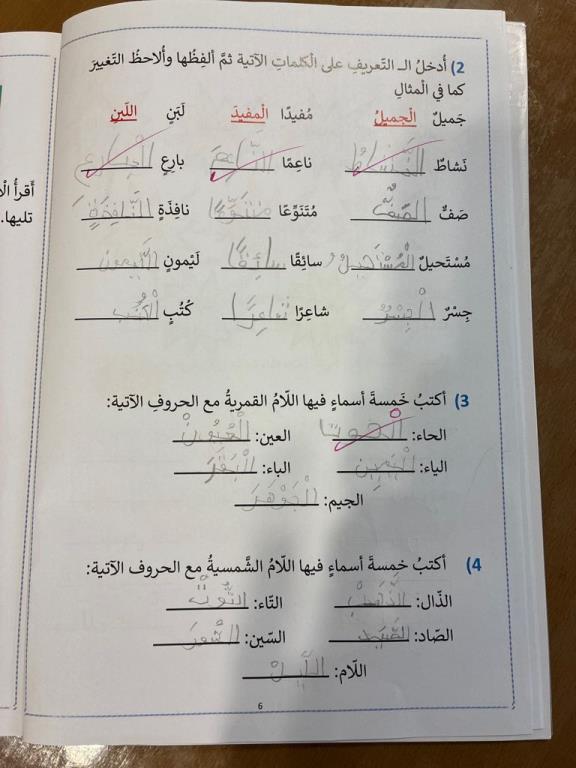 2) أُدخلُ الـ التّعريفِ على الْكلماتِ الآتية ثمَّ ألِفظُها وأُلاحظُ التَّغييرَ
كما في الْمثالِ
جَميلٌ الْجميلُ مُفيدًا الْمفيدَ لَبَنٍ اللّبنِ
نَشاطٌ النَّشاطُ ناعِمًا النَّاعِمَ بارِعٍ الْبارِعِ
صَفٌّ الصَّفُّ مُتَنَوِّعًا متنوِّعًا نافِذَةٍ النَّافِذَةِ
مُسْتَحيلٌ الْمُسْتَحيلُ سائِقًا سائِقًا لَيْمونٍ اللَّيمون
جِسْرٌ الْجِسْرُ شاعِرًا شاعِرًا كُتُبٍ الْكُتُب
3) أكتبُ خَمسةَ أسماءٍ فيها اللّامُ القمريةُ مع الحروفِ الآتية:
الحاء: الْحوت العين: الْعُيُونْ
الياء: الْيَمين الباء: الْبَقَرَ
الجيم: الْجَوْهَرَ
4) أكتبُ خمسةَ أسماءٍ فيها اللّامُ الشَّمسيةُ مع الحروف الآتية:
الذّال: الذَّهَبْ التّاء: التُّوتْ
الصّاد: الصَّيد السّين: السُّورَ
اللّام: اللَّيْلْ
6
أقرأُ الْ
تليها.